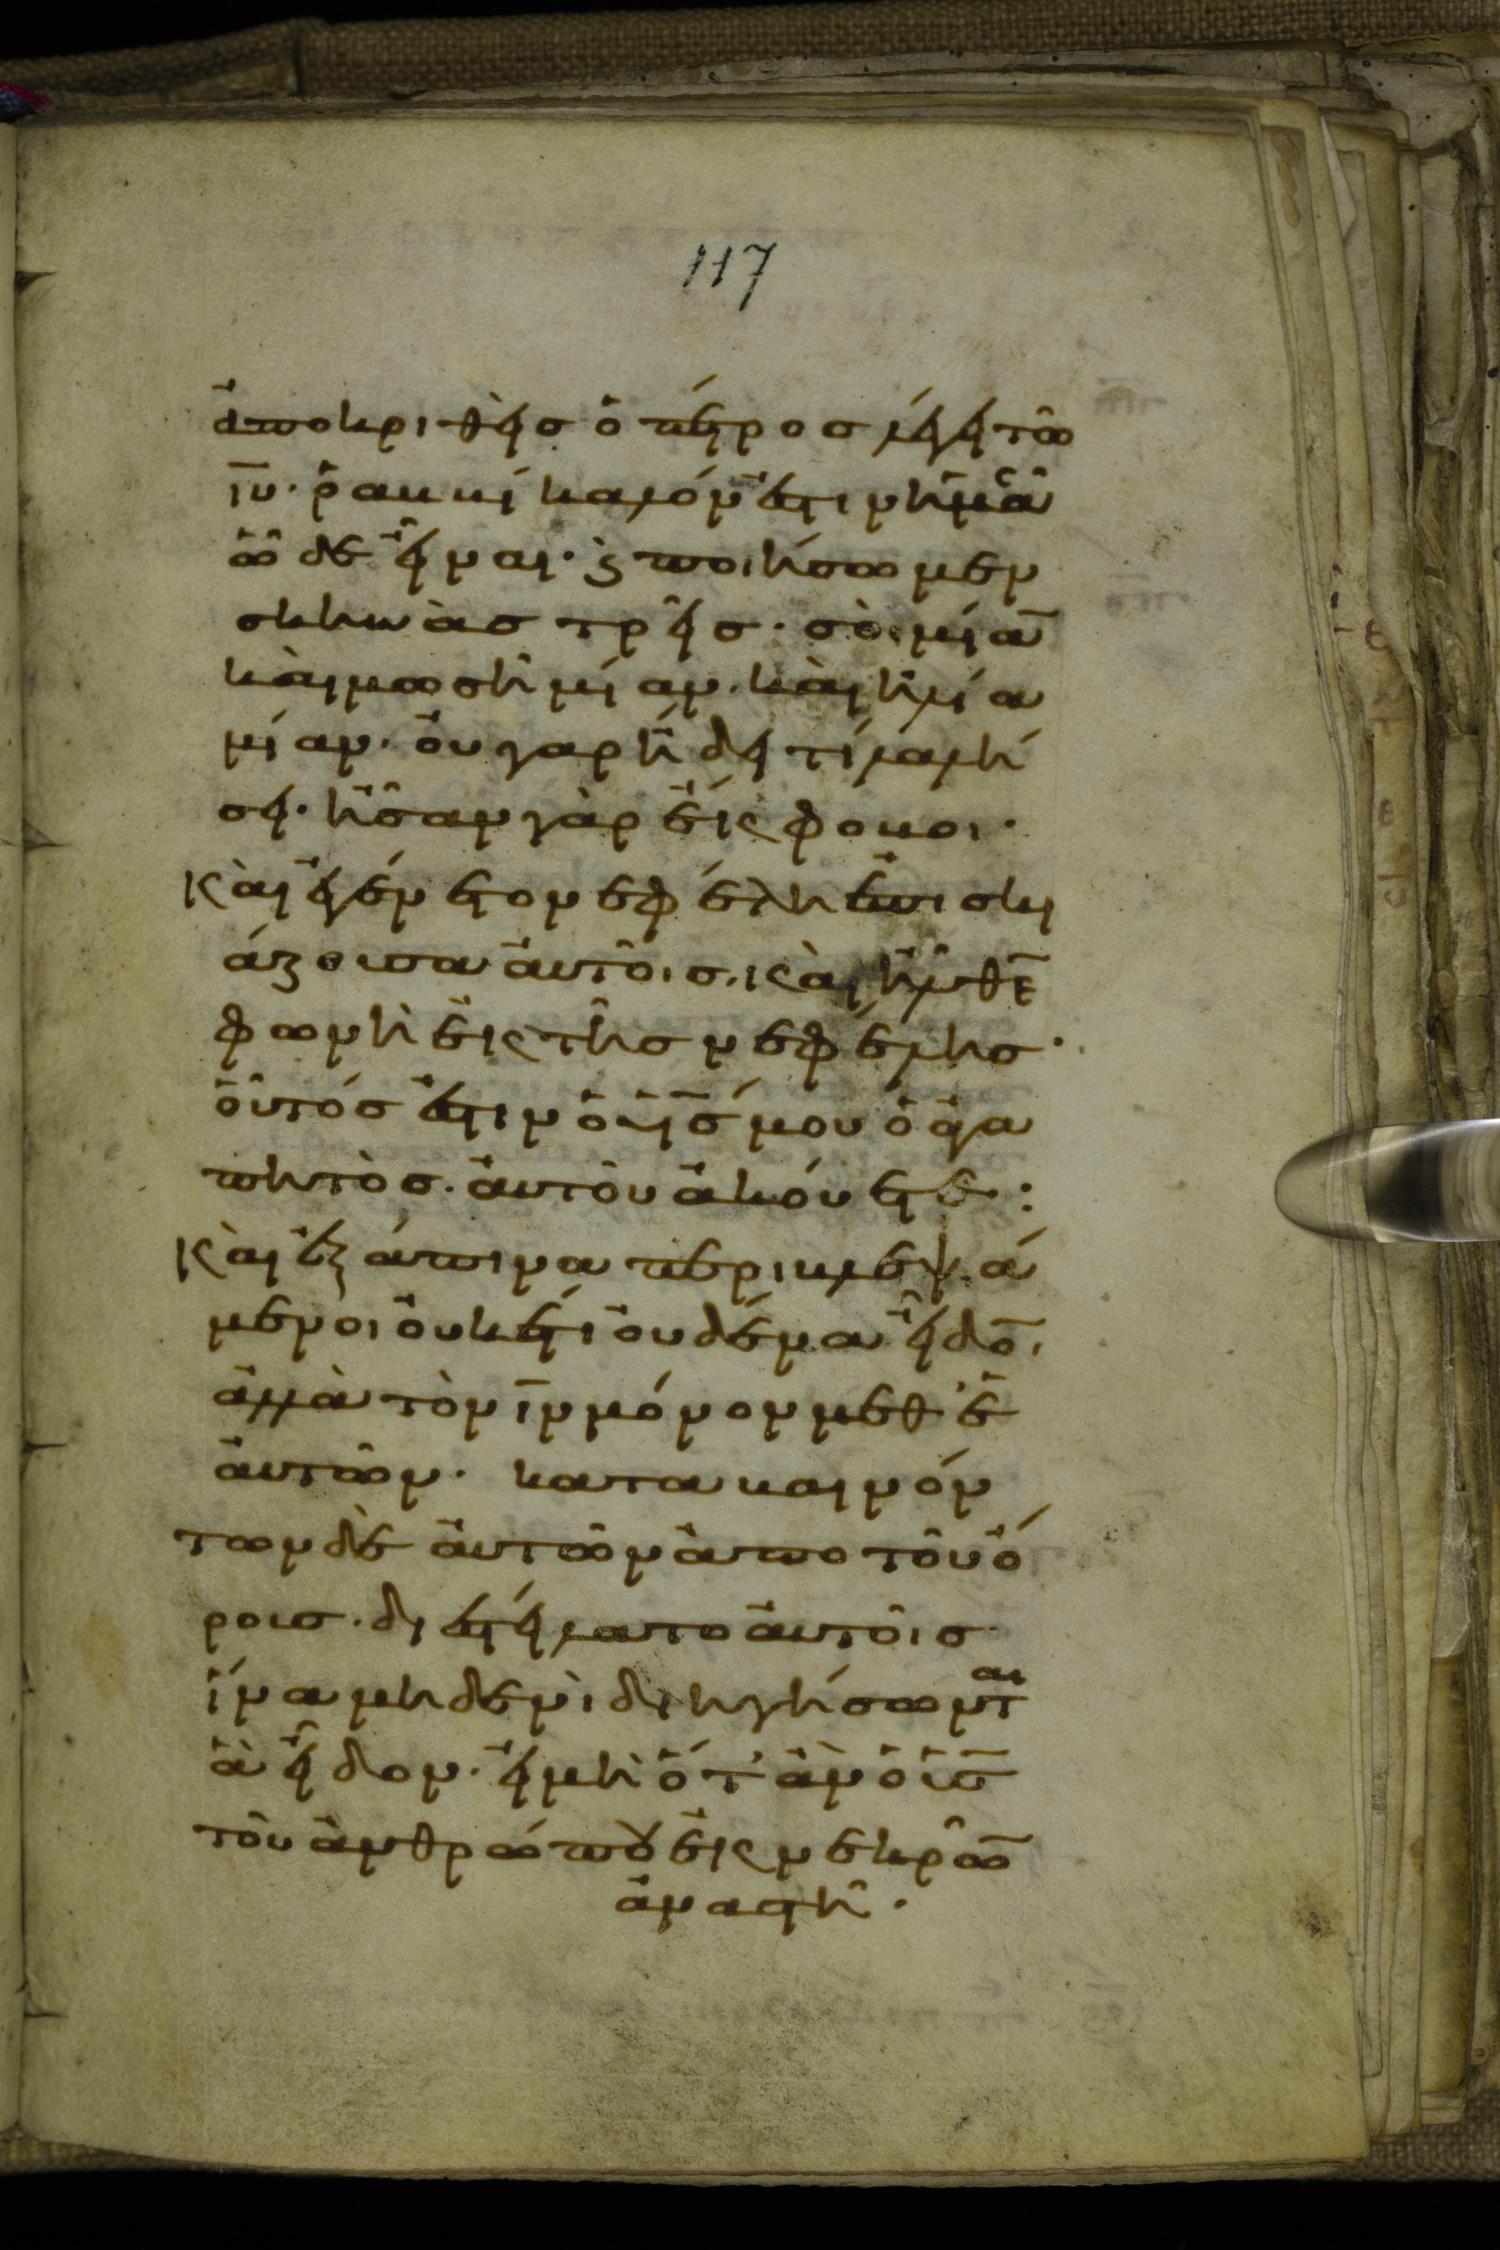 117
ἀποκριθεὶς ὁ πέτρος λέγει τῶ
ιῡ· ῥαββί καλόν ἐστιν ἡμᾶ
ὧδε εἶναι· ϗ ποιήσωμεν
σκηνὰς τρεῖς· σοὶ μίαν̅
καὶ μωσῆ μίαν· καὶ ἡλία
μίαν· οὐ γαρ ἤδει τί λαλή
σει· ἦσαν γὰρ ἔκφοβοι·
Καὶ ἐγένετο νεφέλη ἐπισκι
άζουσα αὐτοῖς· καὶ ἦλθε̅
φωνὴ ἐκ τῆς νεφέλης·
οὗτός ἐστιν ὁ υἱ̅ς μου ὁ ἀγα
πητὸς· αὐτοῦ ἀκούετε:
Καὶ ἐξάπινα περιβλεψά
μενοι οὐκέτι οὐδένα εἶδο̅·
ἀλλὰ τὸν ιν̅ μόνον μεθ' ἑ
αὐτῶν· καταβαινόν
των δὲ αὐτῶν ἀπο τοῦ ὄ
ρους· διεστείλατο αὐτοῖς
ἵνα μηδενὶ διηγήσωνται
ἃ εἶδον· εἰ μὴ ὅτ' ἂν ὁ υἱ̅ς
τοῦ ἀνθρώπου ἐκ νεκρῶ̅
ἀναστῆ·